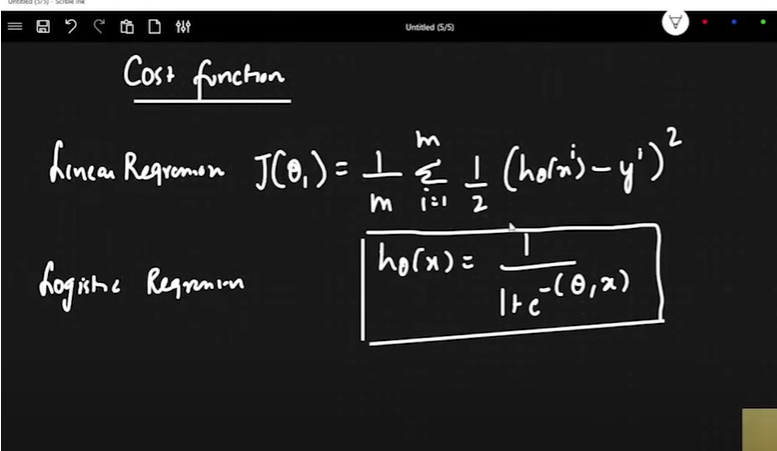 Untitled (5/5) - Scribble Ink
Untitled (5/5)
Cost function
Linear Regression J(θ₁) = 1/m Σ_{i=1}^{m} 1/2 (hθ(xⁱ) - yⁱ)²
Logistic Regression hθ(x) = 1/(1+e^{-(θ₁x)})